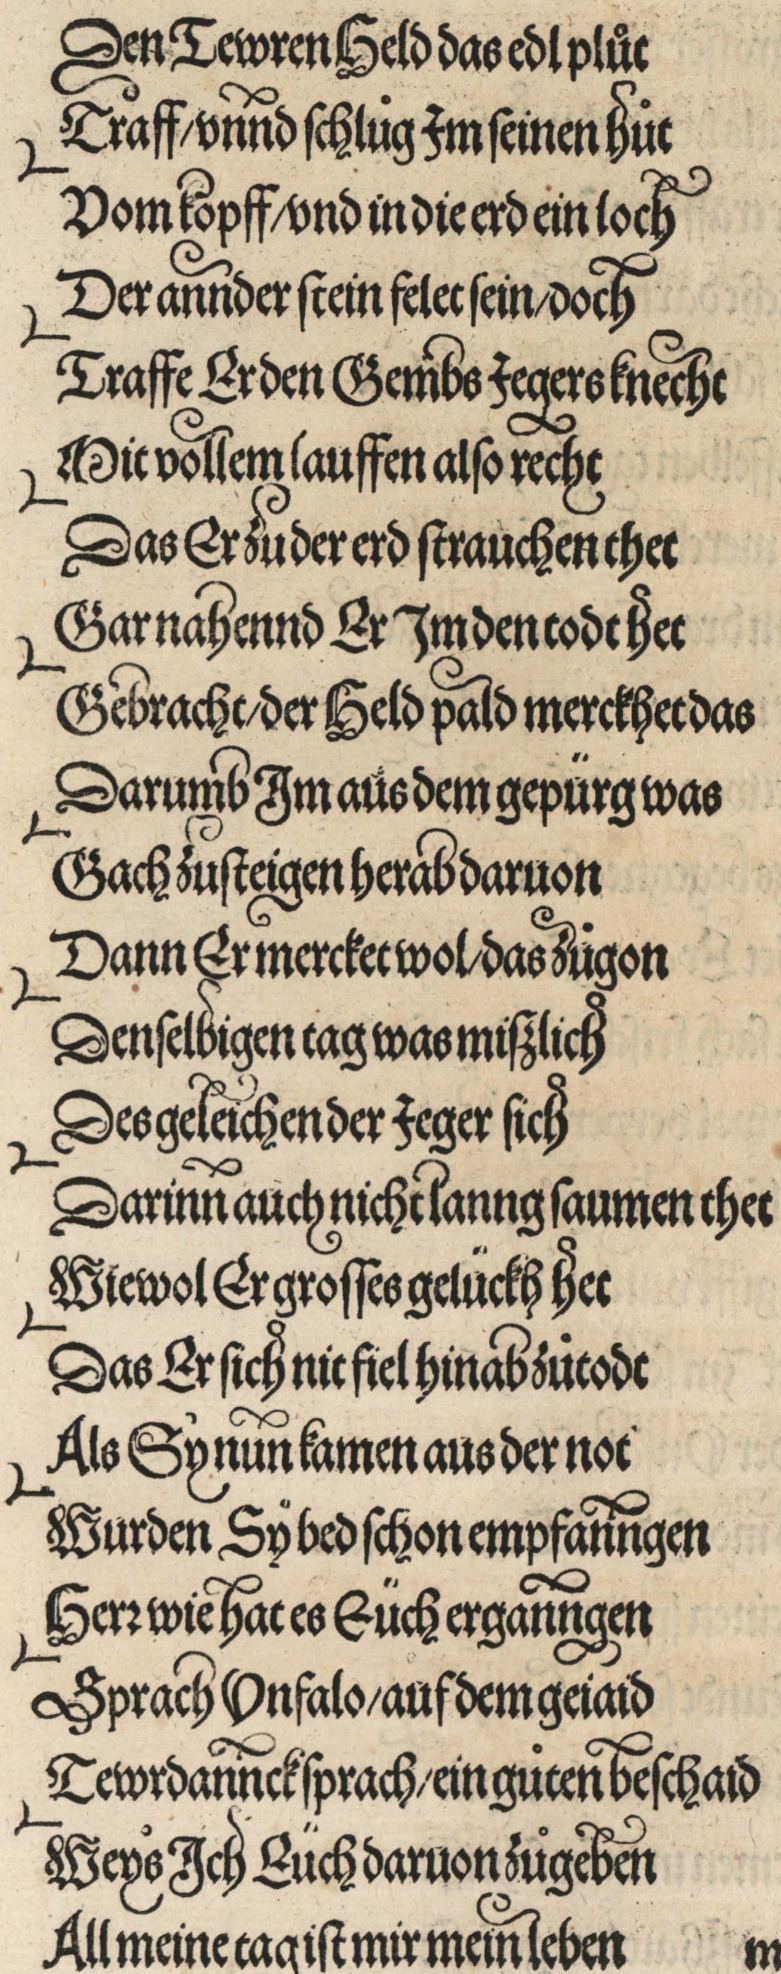 Den Tewren Held das edl plůt
Traff/vnnd schlůg Im seinen hůt
Vom kopff/vnd in die erd ein loch
Der annder stein felet sein/doch
Traffe Er den Gembs Jegers knecht
Mit vollem lauffen also recht
Das Er zu der erd strauchen thet
Gar nahennd Er Im den todt het
Gebracht/der Held pald merckhet das
Darumb Im aus dem gepürg was
Gach zusteigen herab daruon
Dann Er mercket wol/das zůgon
Denselbigen tag was mißlich
Des geleichen der Jeger sich
Darinn auch nicht lanng saumen thet
Wiewol Er grosses gelückh het
Das Er sich nit fiel hinab zůtodt
Als Sy nun kamen aus der not
Wurden Sÿ bed schon empfanngen
Herr wie hat es Eüch erganngen
Sprach Vnfalo/auf dem geiaid
Tewrdannck sprach/ein gůten beschaid
Weys Ich Eüch daruon zůgeben
All meine tag ist mir mein leben m